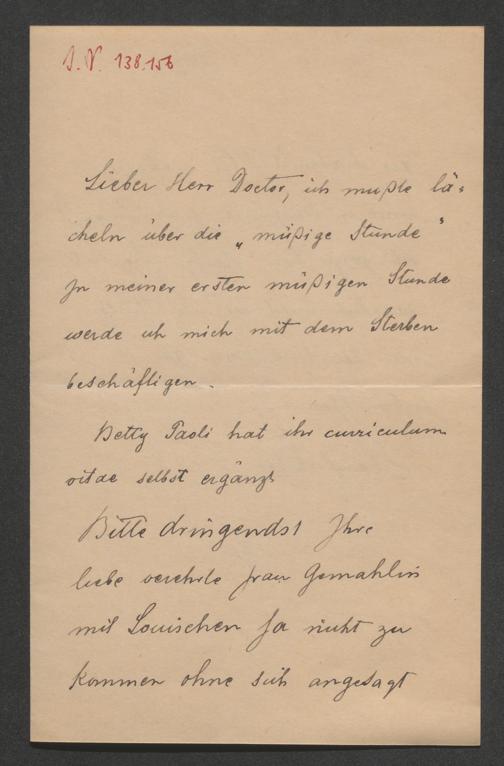 I. N. 138.156
Lieber Herr Doctor, ich mußte lä=
cheln über die „müßige Stunde"
In meiner ersten müßigen Stunde
werde ich mich mit dem Sterben
beschäftigen.
Betty Paoli hat ihr curriculum
vitae selbst ergänzt
Bitte dringendst Ihre
liebe verehrte Frau Gemahlin
mit Louischen ja nicht zu
kommen ohne sich angesagt